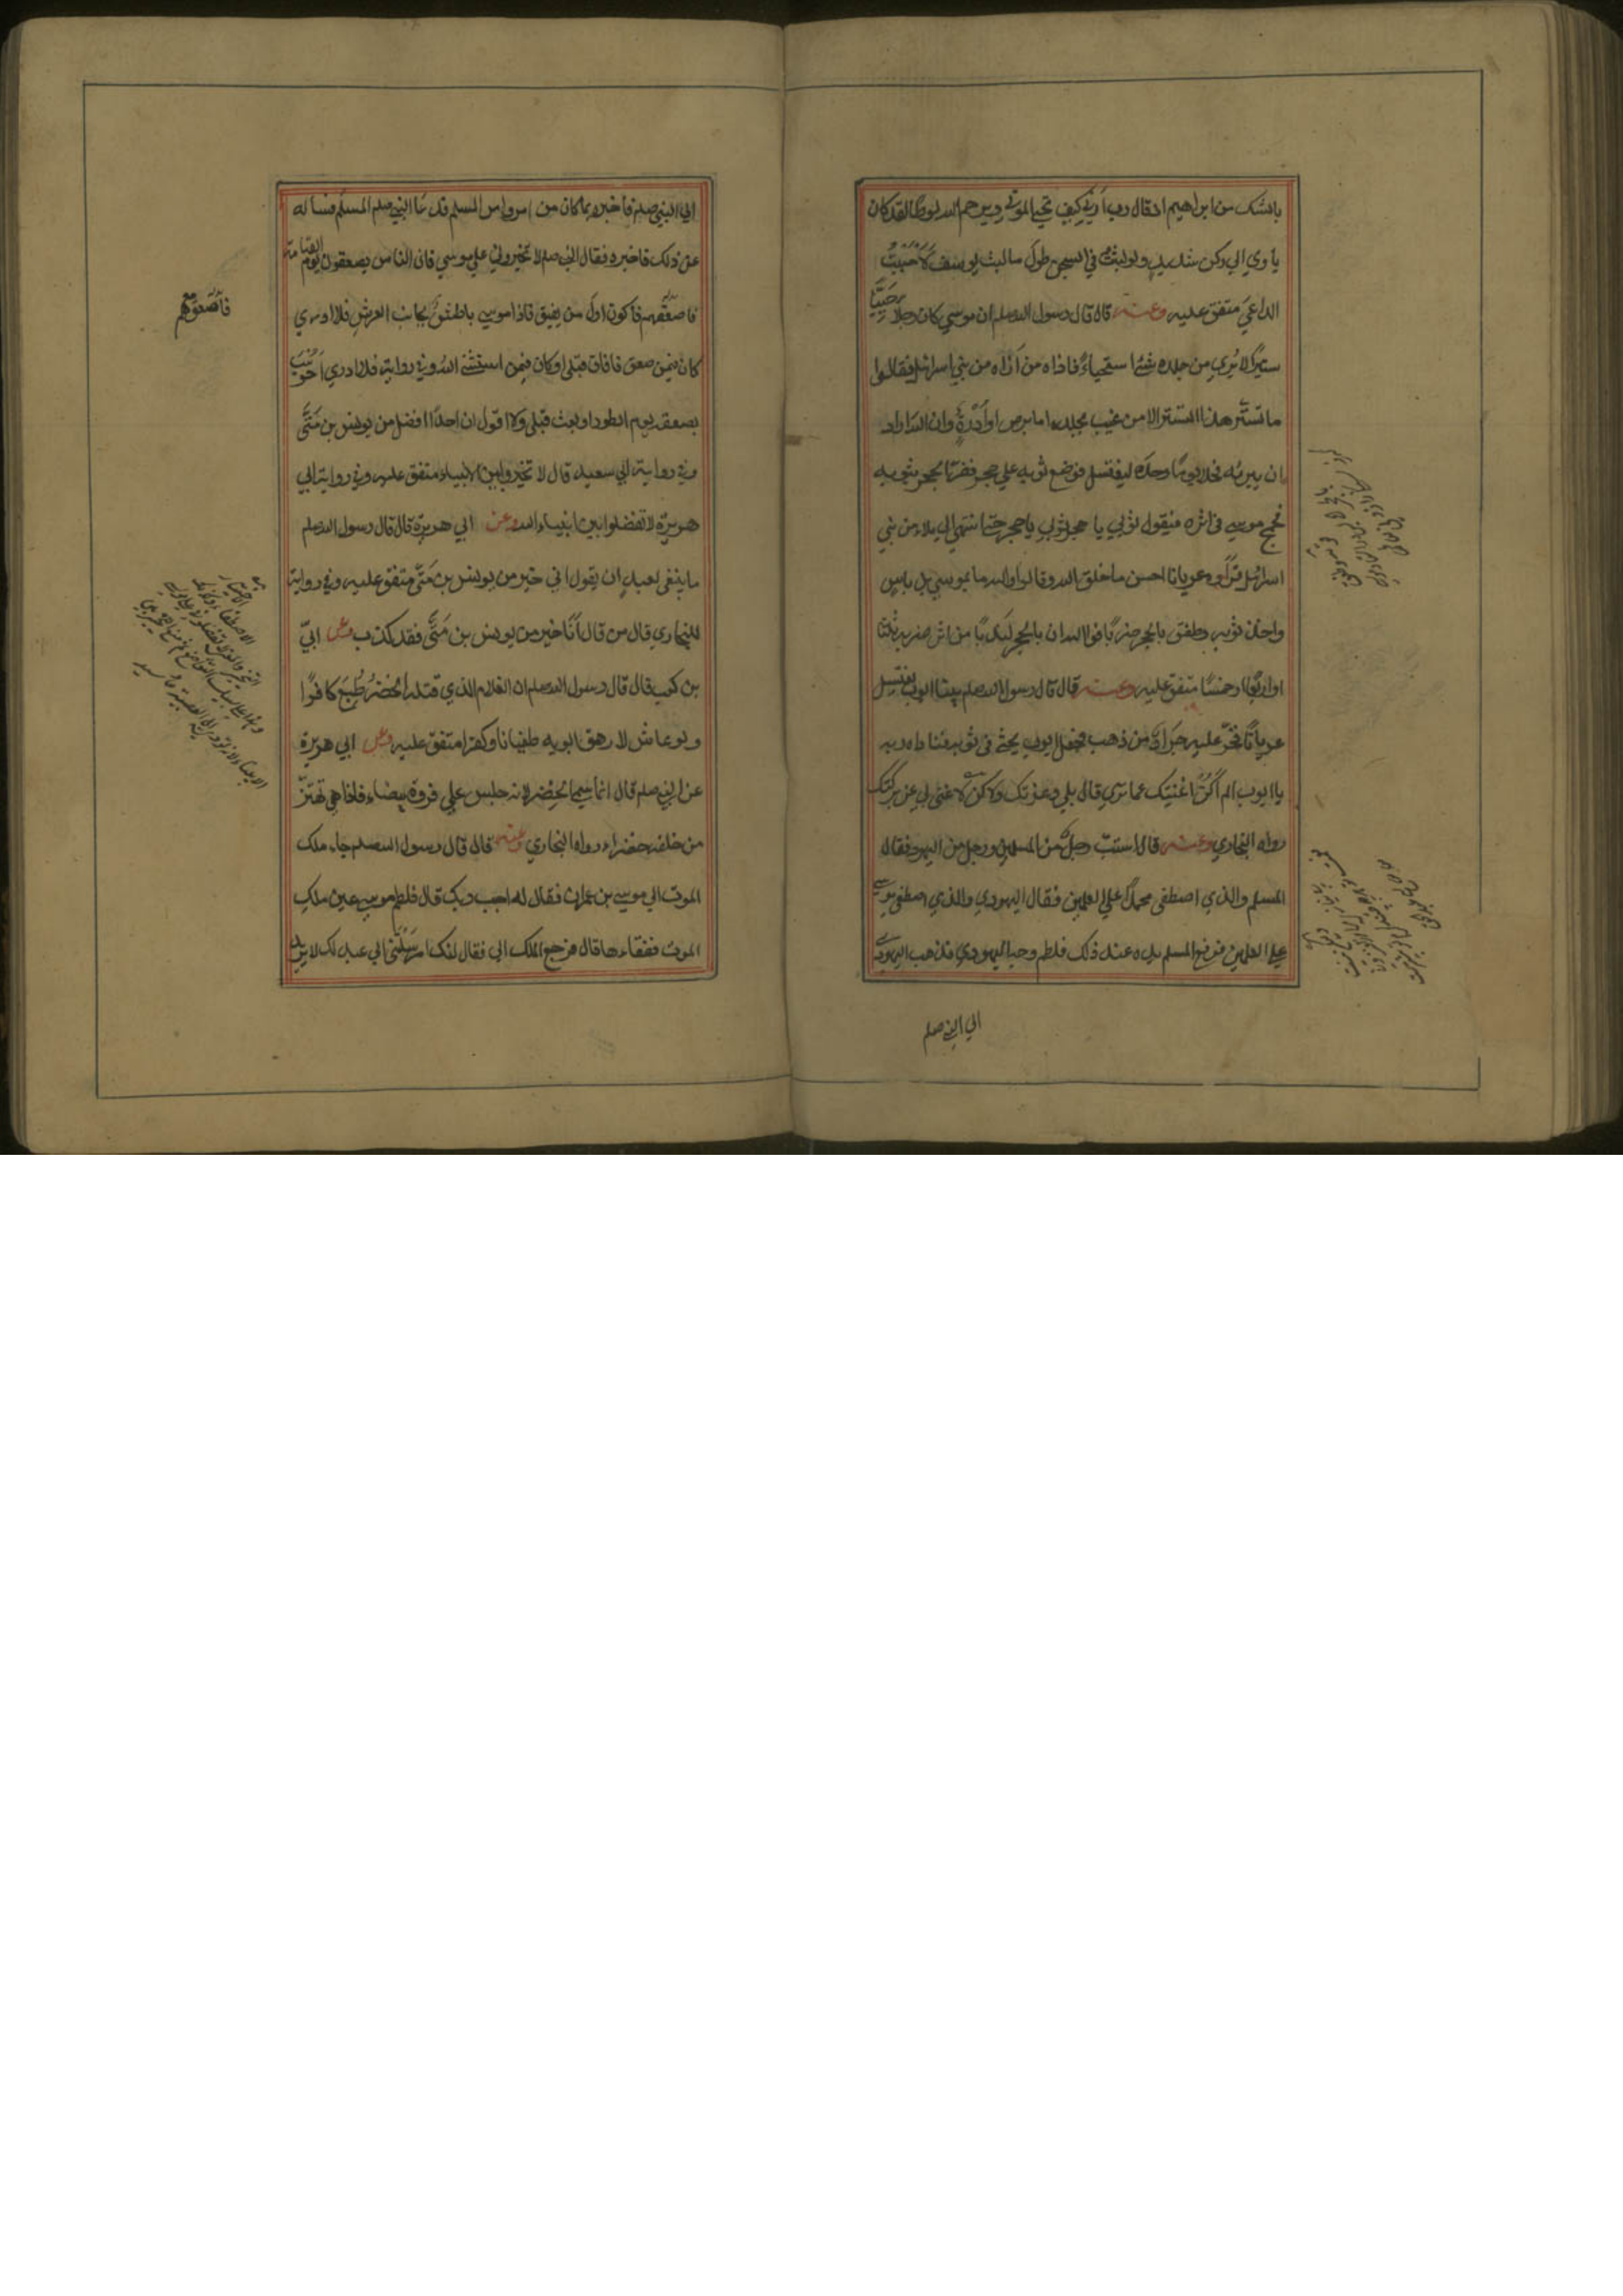 بالشك من ابراهيم اذ قال رب أرني كيف تحي الموتي ويرحم الله لوطا لقد كان
ياوي الي ركن شديد ولو لبثت في السجن طول ما لبث يوسف لأجبت
الداعي متفق عليه وعنه قال قال رسول الله صلم ان موسي كان رجلا حييا
ستيرا لا يري من جلده شئ استحياء فاذاه من أذاه من بني اسرائيل فقالوا
ما تستر هذا التستر الا من عيب بجلده اما برص او أدرة وان الله اراد
ان يبرئه فخلا يوما وحده ليغتسل فوضع ثوبه علي حجر ففر الحجر بثوبه
فجمح موسي في اثره فيقول ثوبي يا حجر ثوبي يا حجر حتى انتهي الي ملاء من بني
اسرائيل فرأوه عريانا احسن ما خلق الله وقالوا والله ما بموسي من باس
واخذ ثوبه وطفق بالحجر ضربا فوالله ان بالحجر لندبا من اثر ضربه ثلثا
او اربعا او خمسا متفق عليه وعنه قال قال رسول الله صلم بينا ايوب يغتسل
عريانا فخر عليه جراد من ذهب فجعل ايوب يحثي في ثوبه فناداه ربه
يا ايوب الم أكن اغنيتك عما تري قال بلي وعزتك ولاكن لا غني لي عن بركتك
رواه البخاري وعنه قال استب رجل من المسلمين ورجل من اليهود فقال
المسلم والذي اصطفي محمدا علي العلمين فقال اليهودي والذي اصطفي موسي
علي العلمين فرفع المسلم يده عند ذلك فلطم وجه اليهودي فذهب اليهودي
الي النبي صلم
الي النبي صلم فاخبره بما كان من امره وامر المسلم فدعا النبي صلم المسلم فسأله
عن ذلك فاخبره فقال النبي صلم لا تخيروني علي موسي فان الناس يصعقون يوم القيامة
فاصعق معهم فاكون اول من يفيق فاذا موسي باطش بجانب العرش فلا ادري
كان فيمن صعق فافاق قبلي او كان فيمن استثني الله وفي رواية فلا ادري أحوسب
بصعقة يوم الطور او بعث قبلي ولا اقول ان احدا افضل من يونس بن متى
وفي رواية ابي سعيد قال لا تخيروا بين الانبياء متفق عليه وفي رواية ابي
هريرة لا تفضلوا بين انبياء الله وعن ابي هريرة قال قال رسول الله صلم
ما ينبغي لعبد ان يقول اني خير من يونس بن متى متفق عليه وفي رواية
للبخاري قال من قال أنا خير من يونس بن متى فقد كذب وعن ابي
بن كعب قال قال رسول الله صلم ان الغلام الذي قتله الخضر طبع كافرا
ولو عاش لارهق ابويه طغيانا وكفرا متفق عليه وعن ابي هريرة
عن النبي صلم قال انما سمي الخضر لانه جلس علي فروة بيضاء فاذا هي تهتز
من خلفه خضراء رواه البخاري وعنه قال قال رسول الله صلم جاء ملك
الموت الي موسي بن عمران فقال له اجب ربك قال فلطم موسي عين ملك
الموت ففقاءها قال فرجع الملك الي فقال انك ارسلتني الي عبد لك لا يريد
فأصعق معهم